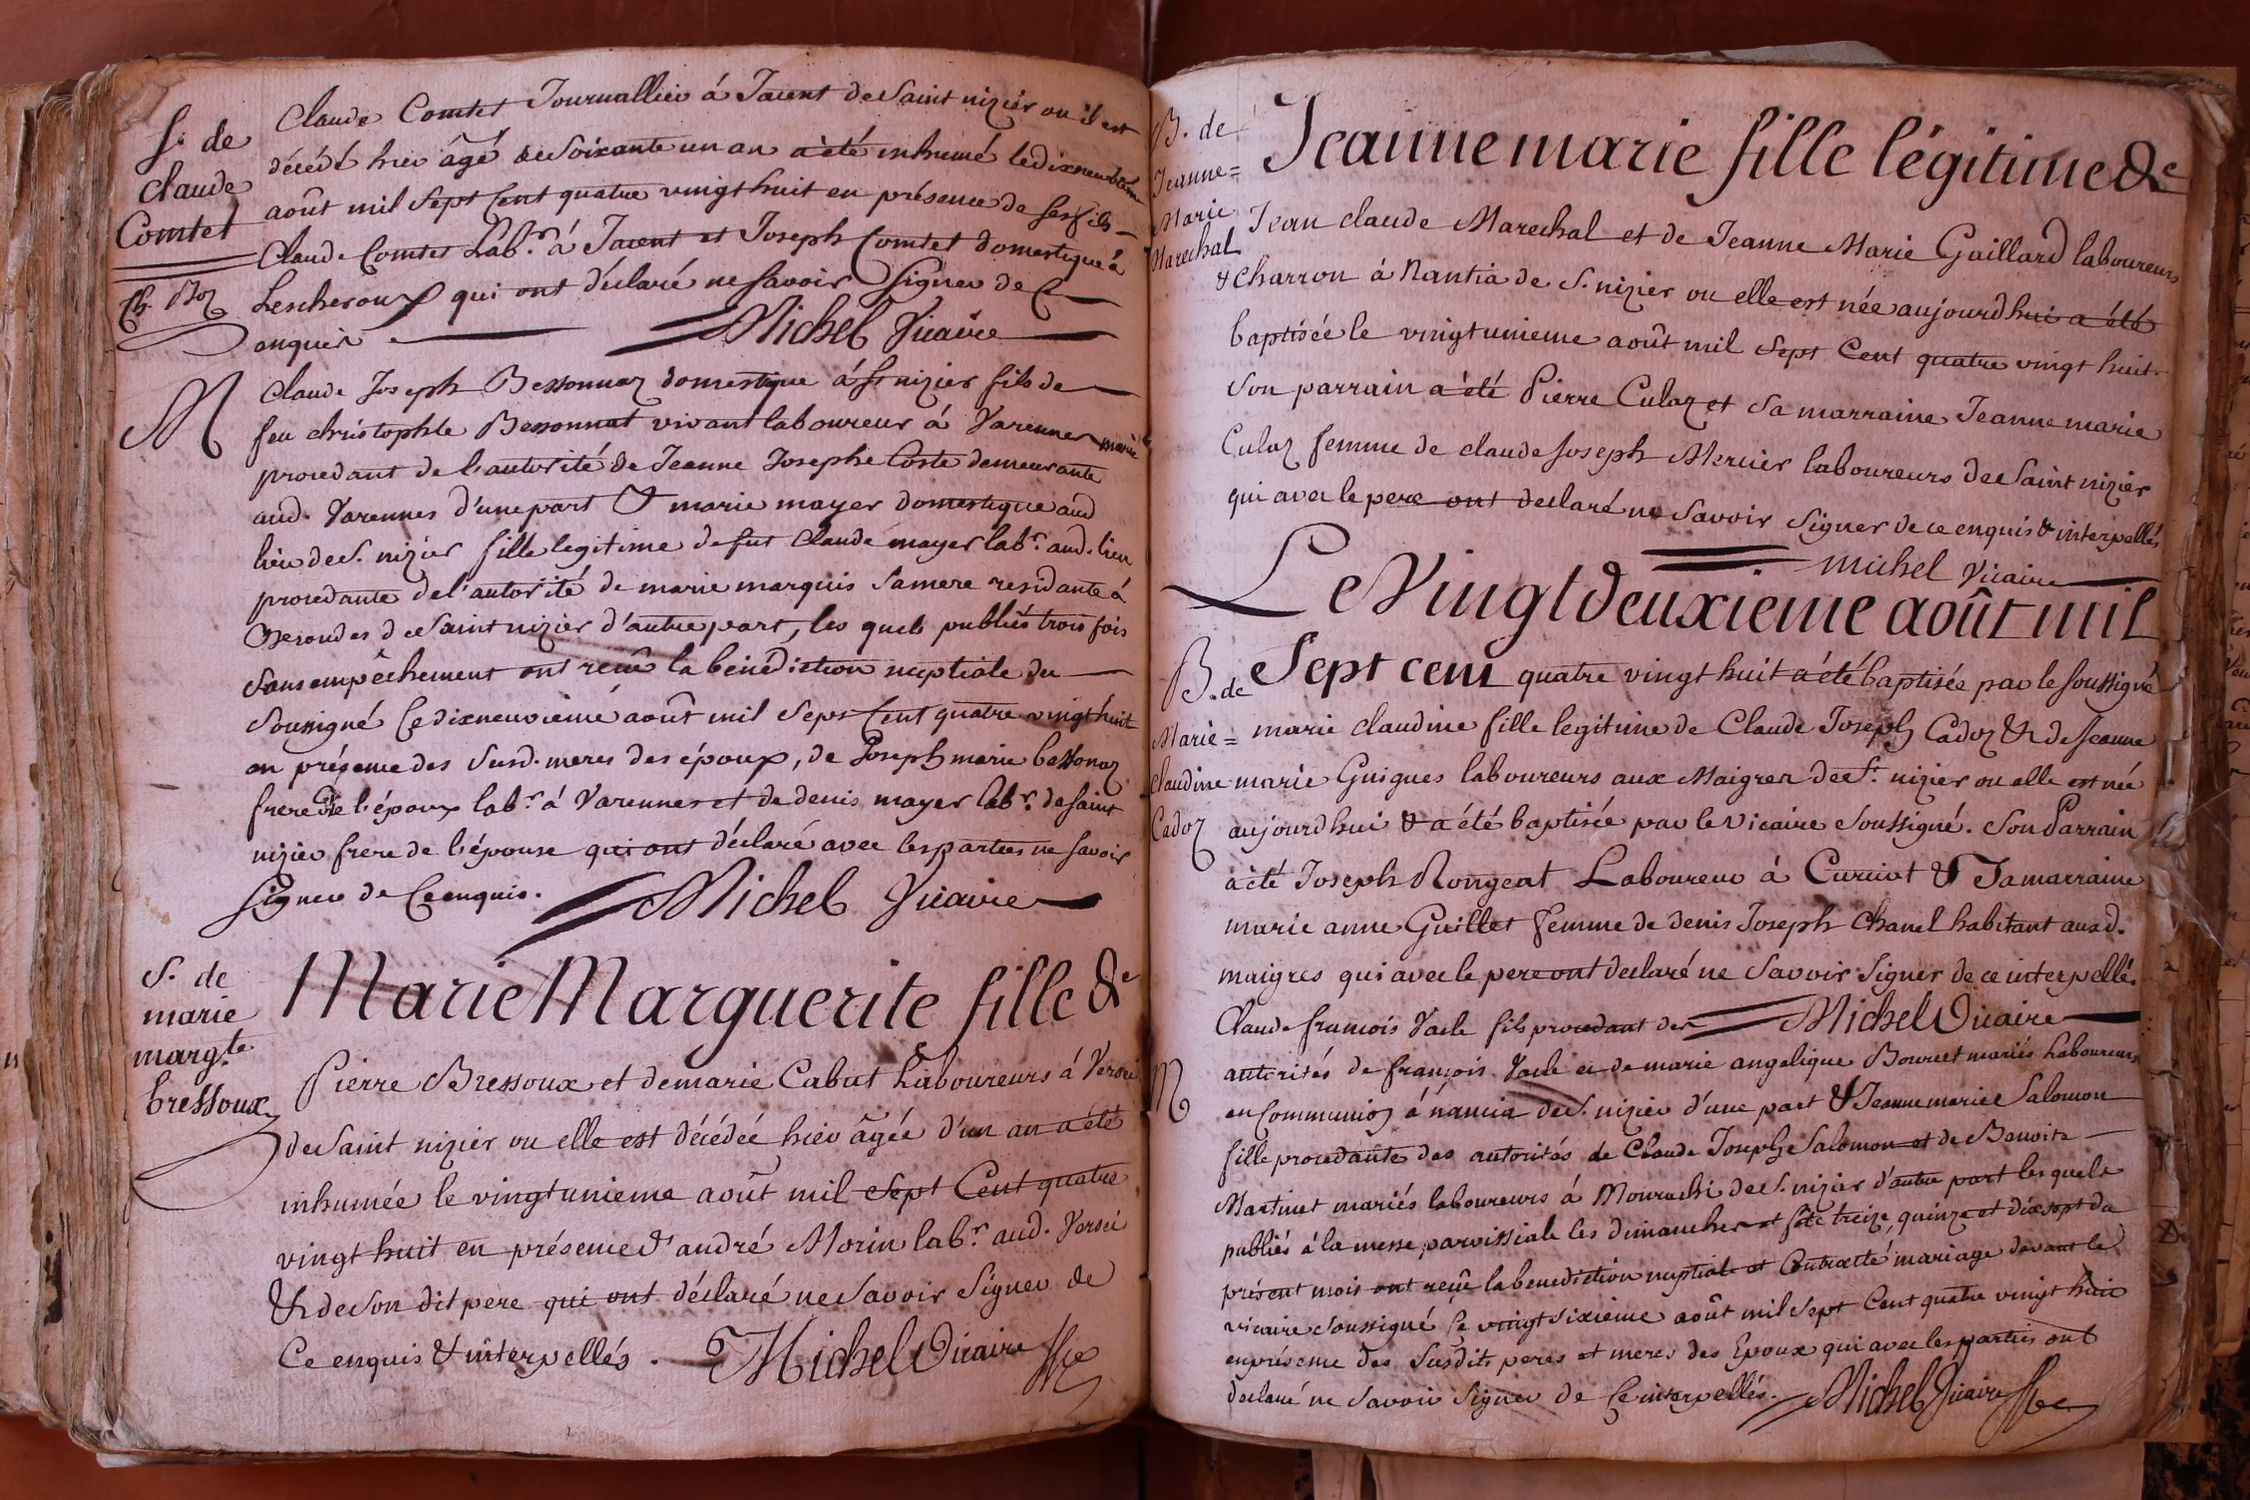 S. de
Claude
Comtet
Claude Comtet Journallier à Jacent de Saint nizier ou il est
décédé hier âgé de Soixante un an a été inhumé le dixneuvieme
août mil Sept Cent quatre vingt huit en présence de ses fils
Claude Comtet Lab.r à Jacent et Joseph Comtet domestique à
Lescheroux qui ont déclaré ne savoir Signer de C
enquis Michel Vicaire
M
Claude Joseph Bessonnaz domestique à St nizier fils de
feu christophle Bessonnat vivant laboureur à Varennes
procedant de l'autorité de Jeanne Josephe Coste demeurante
aud. Varennes d'une part & marie mayer domestique aud
lieu de S. nizier fille legitime de fut Claude mayer lab.r aud. lieu
procedante de l'autorité de marie marquis Sa mere residante à
de Saint nizier d'autre part, les quels publiés trois fois
Sans empêchement ont reçû la bénédiction nuptiale du
Soussigné Ce dixneuvieme août mil Sept Cent quatre vingt huit
en présence des Susd. meres des époux, de Joseph marie bessonaz
frere de l'époux lab.r à Varennes et de denis mayer lab.r de Saint
nizier frere de l'épouse qui ont déclaré avec les parties ne savoir
Signer de Ce enquis. Michel Vicaire
S. de
marie
marg.te
bressoux
Marie Marguerite fille de
Pierre Bressoux et de marie Cabut Laboureurs à
de Saint nizier ou elle est décédée hier âgée d'un an a été
inhumée le vingtunieme août mil Sept Cent quatre
vingt huit en présence d'andré Morin lab.r aud.
& de Son dit pere qui ont déclaré ne Savoir Signer de
Ce enquis & interpellés. Michel Vicaire
B. de
Jeanne=
Marie
Marechal
Jeanne marie fille légitime de
Jean claude Marechal et de Jeanne Marie Gaillard laboureurs
& Charron à Nantia de S. nizier ou elle est née aujourdhui a été
baptisée le vingtunieme août mil Sept Cent quatre vingt huit
Son parrain a été Pierre Culaz et Sa marraine Jeanne marie
Culaz femme de claude Joseph Mercier laboureurs de Saint nizier
qui avec le pere ont declaré ne Savoir Signer de ce enquis & interpellés
Michel Vicaire
Le Vingt deuxieme août mil
B. de
Marie=
Claudine
Cadoz
Sept cent quatre vingt huit a été baptisée par le Soussigné
marie claudine fille legitime de Claude Joseph Cadoz & de Jeanne
marie Guigues laboureurs aux Maigres de St. nizier ou elle est née
aujourdhui & a été baptisée par le Vicaire Soussigné. Son Parrain
a été Joseph Rongeat Laboureur à Curciat & Sa marraine
marie anne Guillet femme de denis Joseph Chanel habitant auxd.
maigres qui avec le pere ont declaré ne Savoir Signer de ce interpellés
Michel Vicaire
M
Claude françois Vacle fils procedant des
autorités de françois Vacle et de marie angelique Bourcet mariés Laboureurs
en Communion à nancia de S. nizier d'une part & Jeanne marie Salomon
fille procedante des autorités de Claude Joseph Salomon et de Benoite
Martinet mariés laboureurs à de S. nizier d'autre part les quels
publiés à la messe parroissiale les dimanches et fete treize, quinze et dixsept du
présent mois ont reçû la benediction nuptiale et Contracté mariage devant le
vicaire Soussigné Ce vingt sixieme août mil Sept Cent quatre vingt huit
en présence des Susdits peres et meres des Epoux qui avec les parties ont
declaré ne Savoir Signer de Ce interpellés. Michel Vicaire